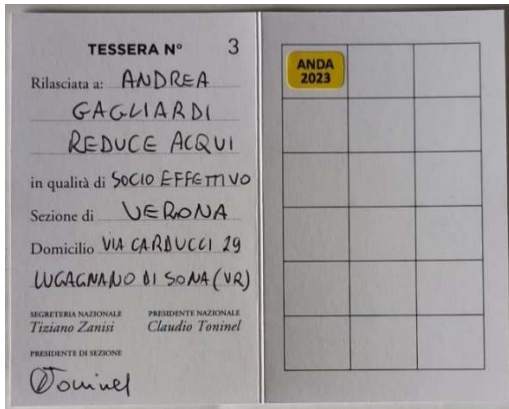 TESSERA N° 3
Rilasciata a: ANDREA
GAGLIARDI
REDUCE ACQUI
in qualità di SOCIO EFFETTIVO
Sezione di VERONA
Domicilio VIA CARDUCCI 29
LUGAGNANO DI SONA (VR)
SEGRETERIA NAZIONALE PRESIDENTE NAZIONALE
Tiziano Zanisi Claudio Toninel
PRESIDENTE DI SEZIONE
CToninel
ANDA
2023